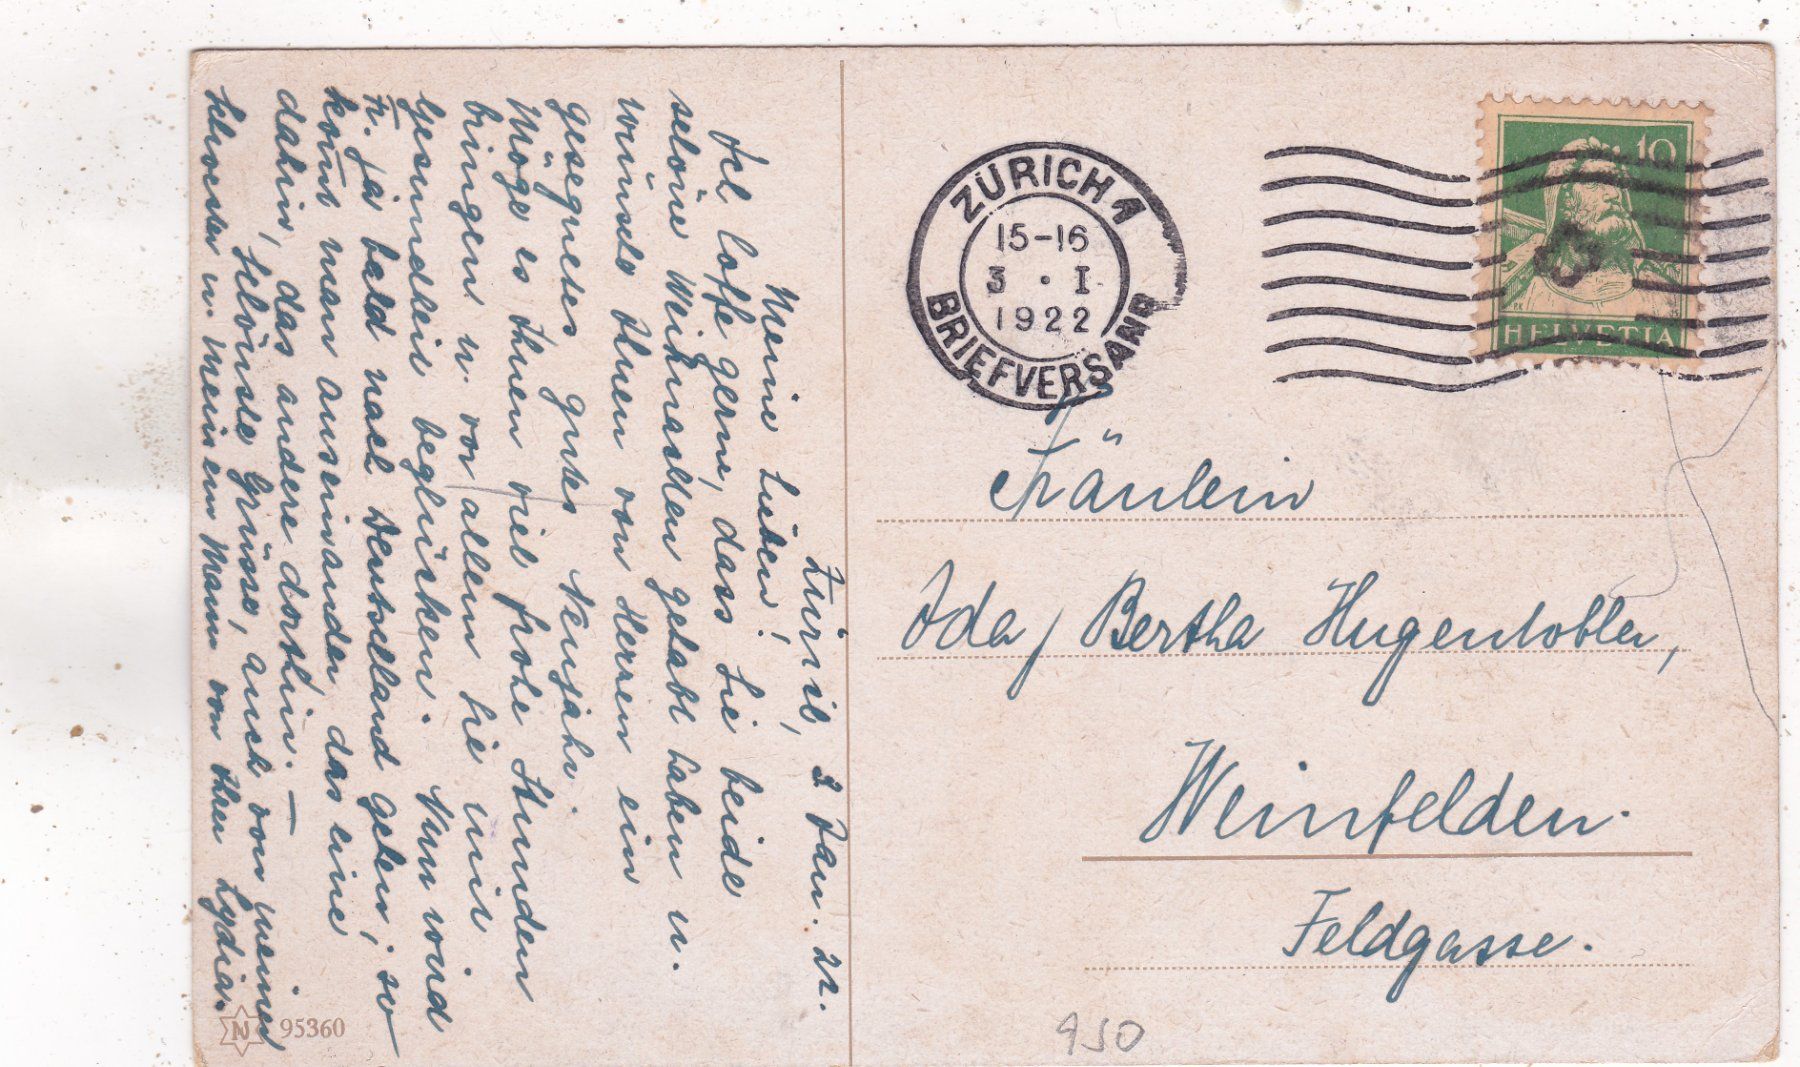 Zürich, 3 Jan. 22.
Meine Lieben!
Ich hoffe gerne, dass Sie beide
schöne Weihnachten gehabt haben u.
wünsche Ihnen von Herzen ein
gesegnetes gutes Neujahr.
Möge es Ihnen viel frohe Stunden
bringen u. vor allem Sie mit
Gesundheit beglücken. Nun wird
ja bald nach Deutschland gehen; so
kom̄t man auseinander, das eine
dahin, das andere dorthin. —
Schönste Grüsse, auch von meiner
Schwester u. meinem Mann von Ihrer Lydia.
N 95360
ZÜRICH 1
15-16
3 . I
1922
BRIEFVERSAND
10
HELVETIA
Fräulein
Ida / Bertha Hugentobler,
Weinfelden.
Feldgasse.
950